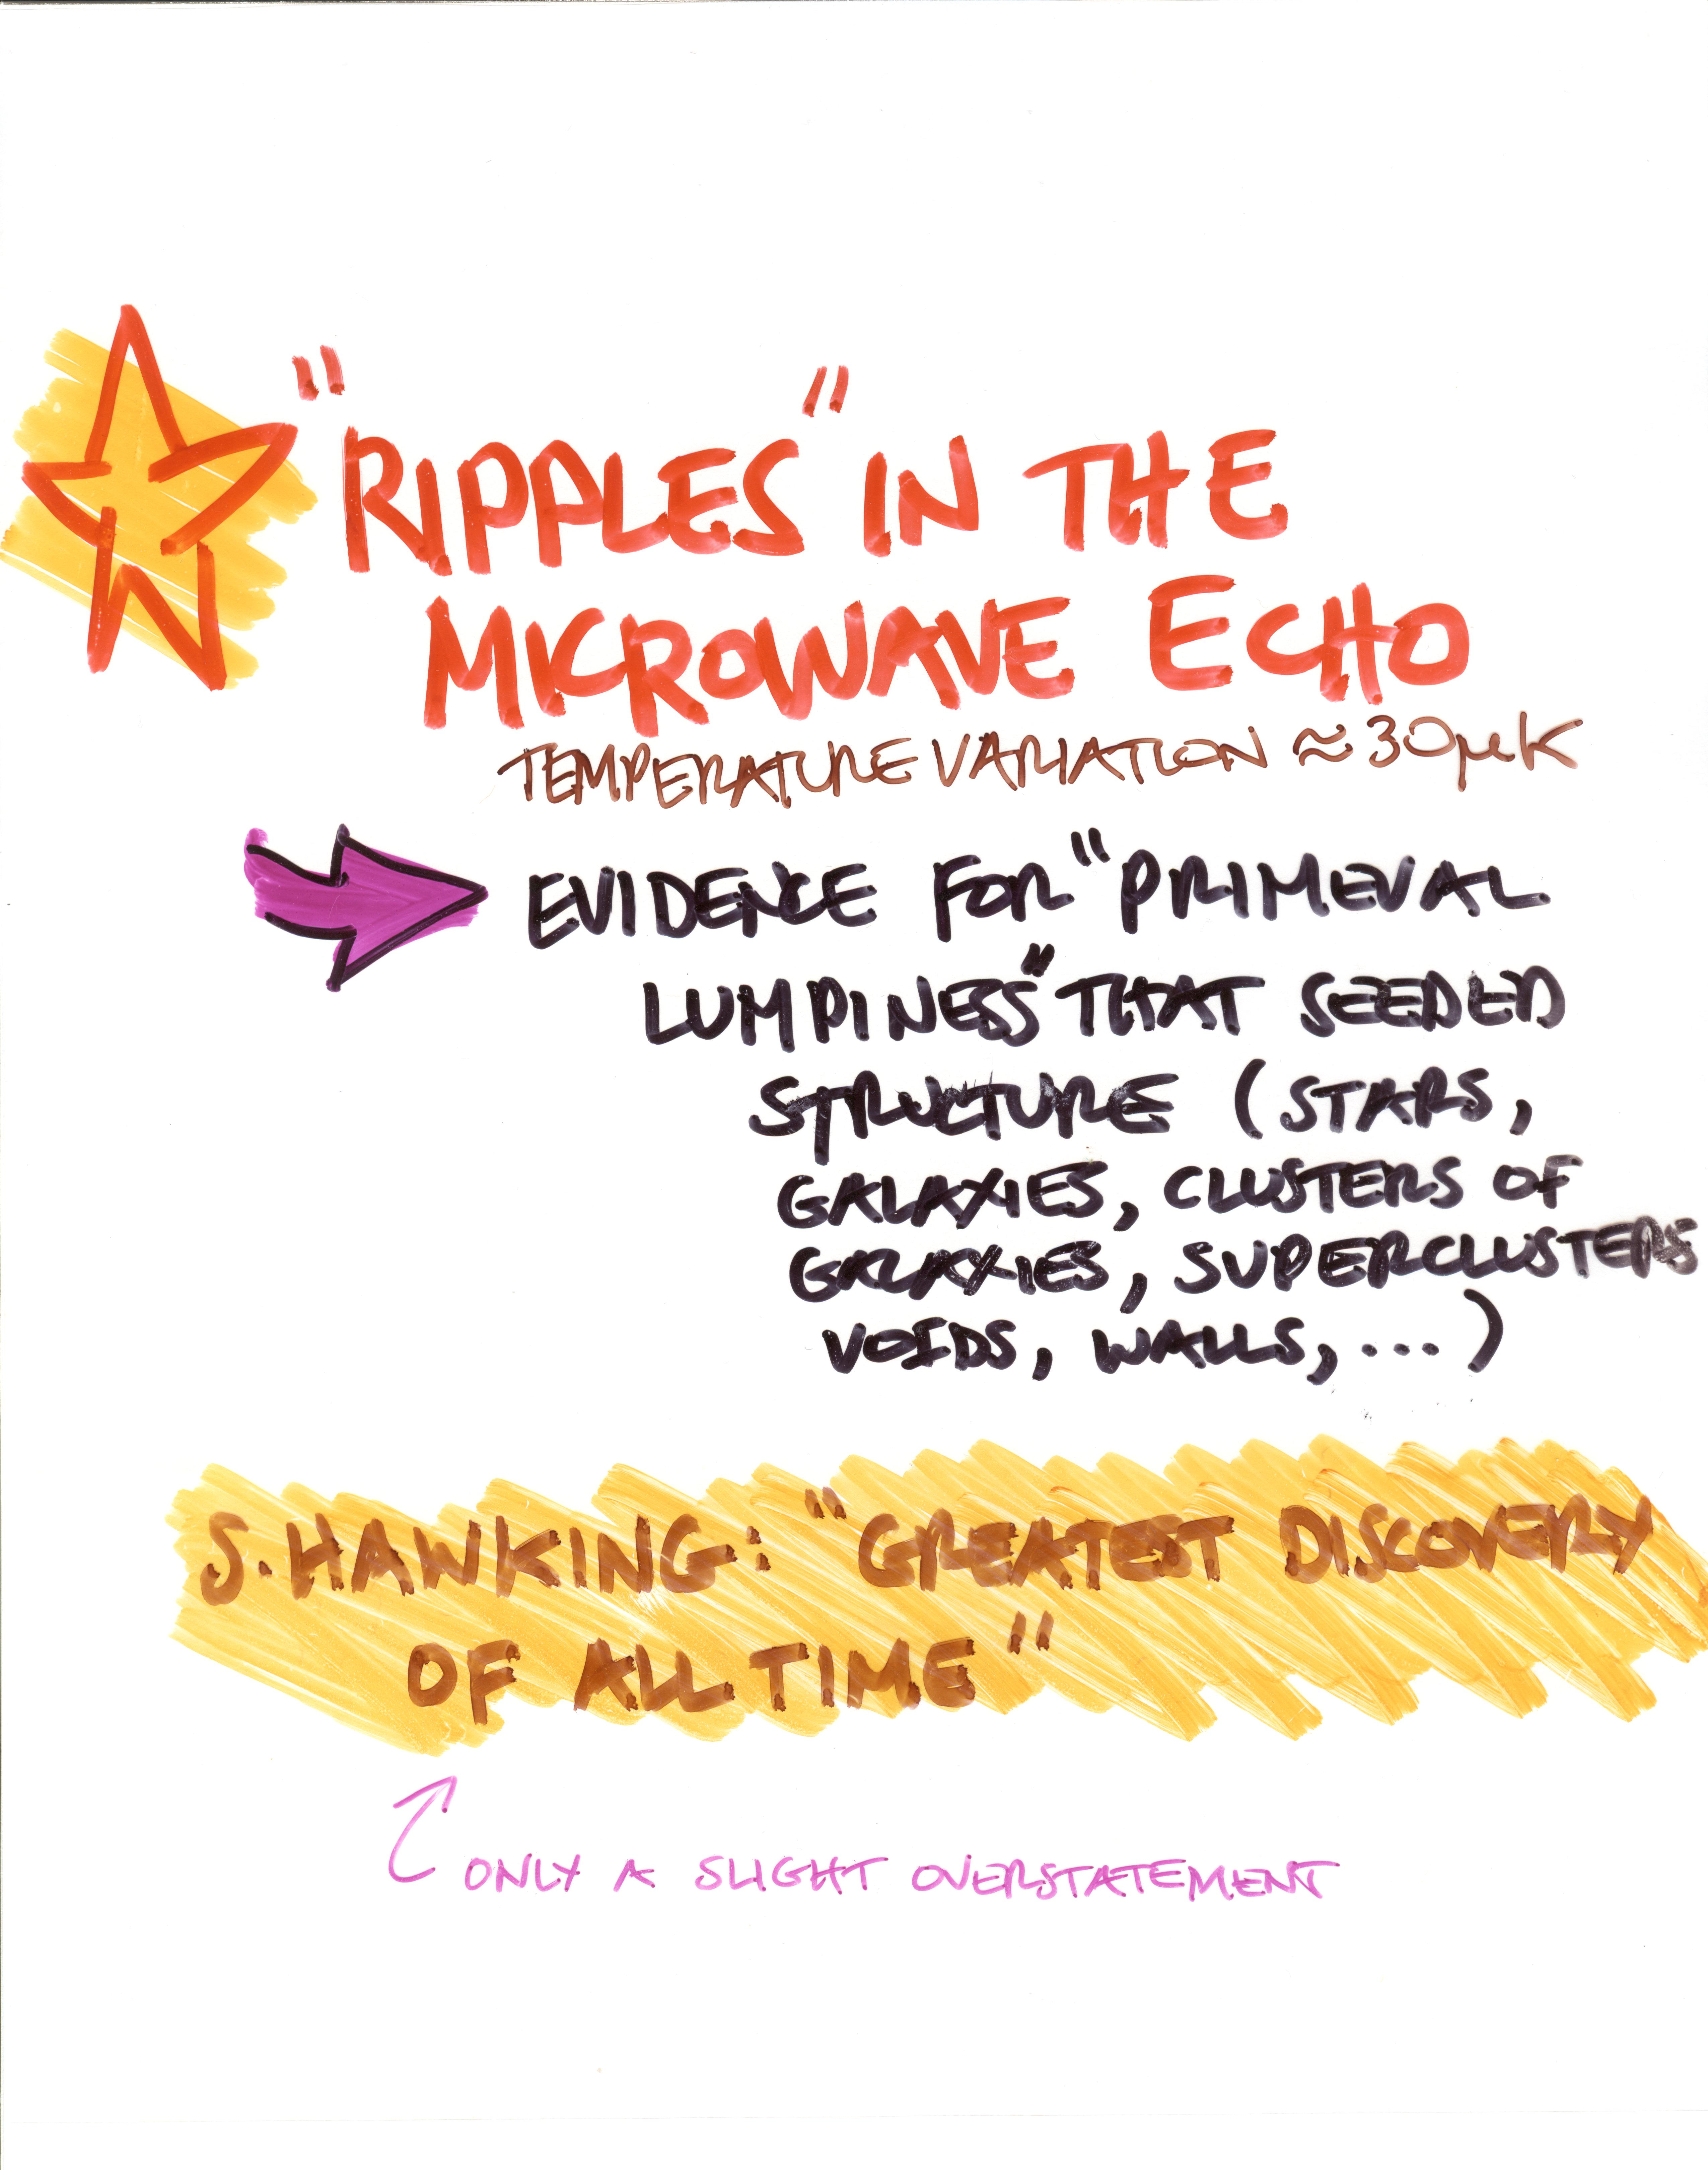 "RIPPLES" IN THE
MICROWAVE ECHO
TEMPERATURE VARIATION ≈ 30μK
EVIDENCE FOR "PRIMEVAL
LUMPINESS" THAT SEEDED
STRUCTURE (STARS,
GALAXIES, CLUSTERS OF
GALAXIES, SUPERCLUSTERS
VOIDS, WALLS, ...)
S. HAWKING: "GREATEST DISCOVERY
OF ALL TIME"
ONLY A SLIGHT OVERSTATEMENT